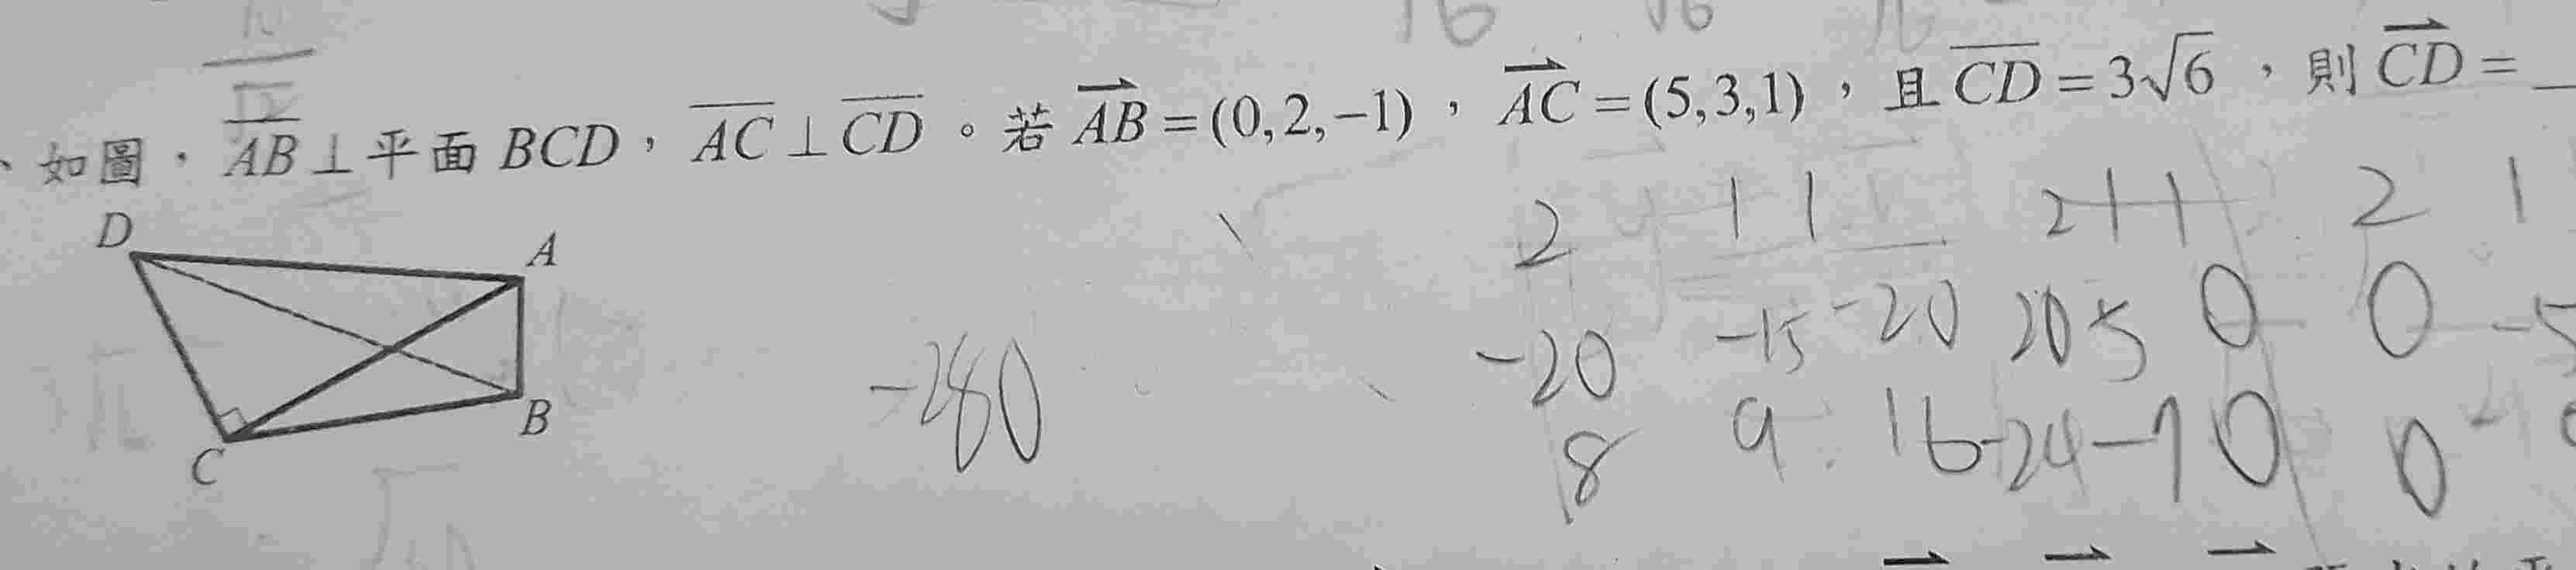 、如圖，AB⊥平面 BCD，AC⊥CD。若 AB=(0,2,-1)，AC=(5,3,1)，且 CD=3√6，則 CD=
D
A
B
C
2 1 1 2 1 1 2 1
-20 -15 -20 20 5 0 0 -5
-280
8 9 16 -24 -1 0 0